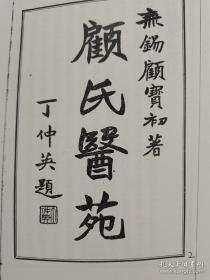 無錫顧寶初著
顧氏醫苑
丁仲英題
2